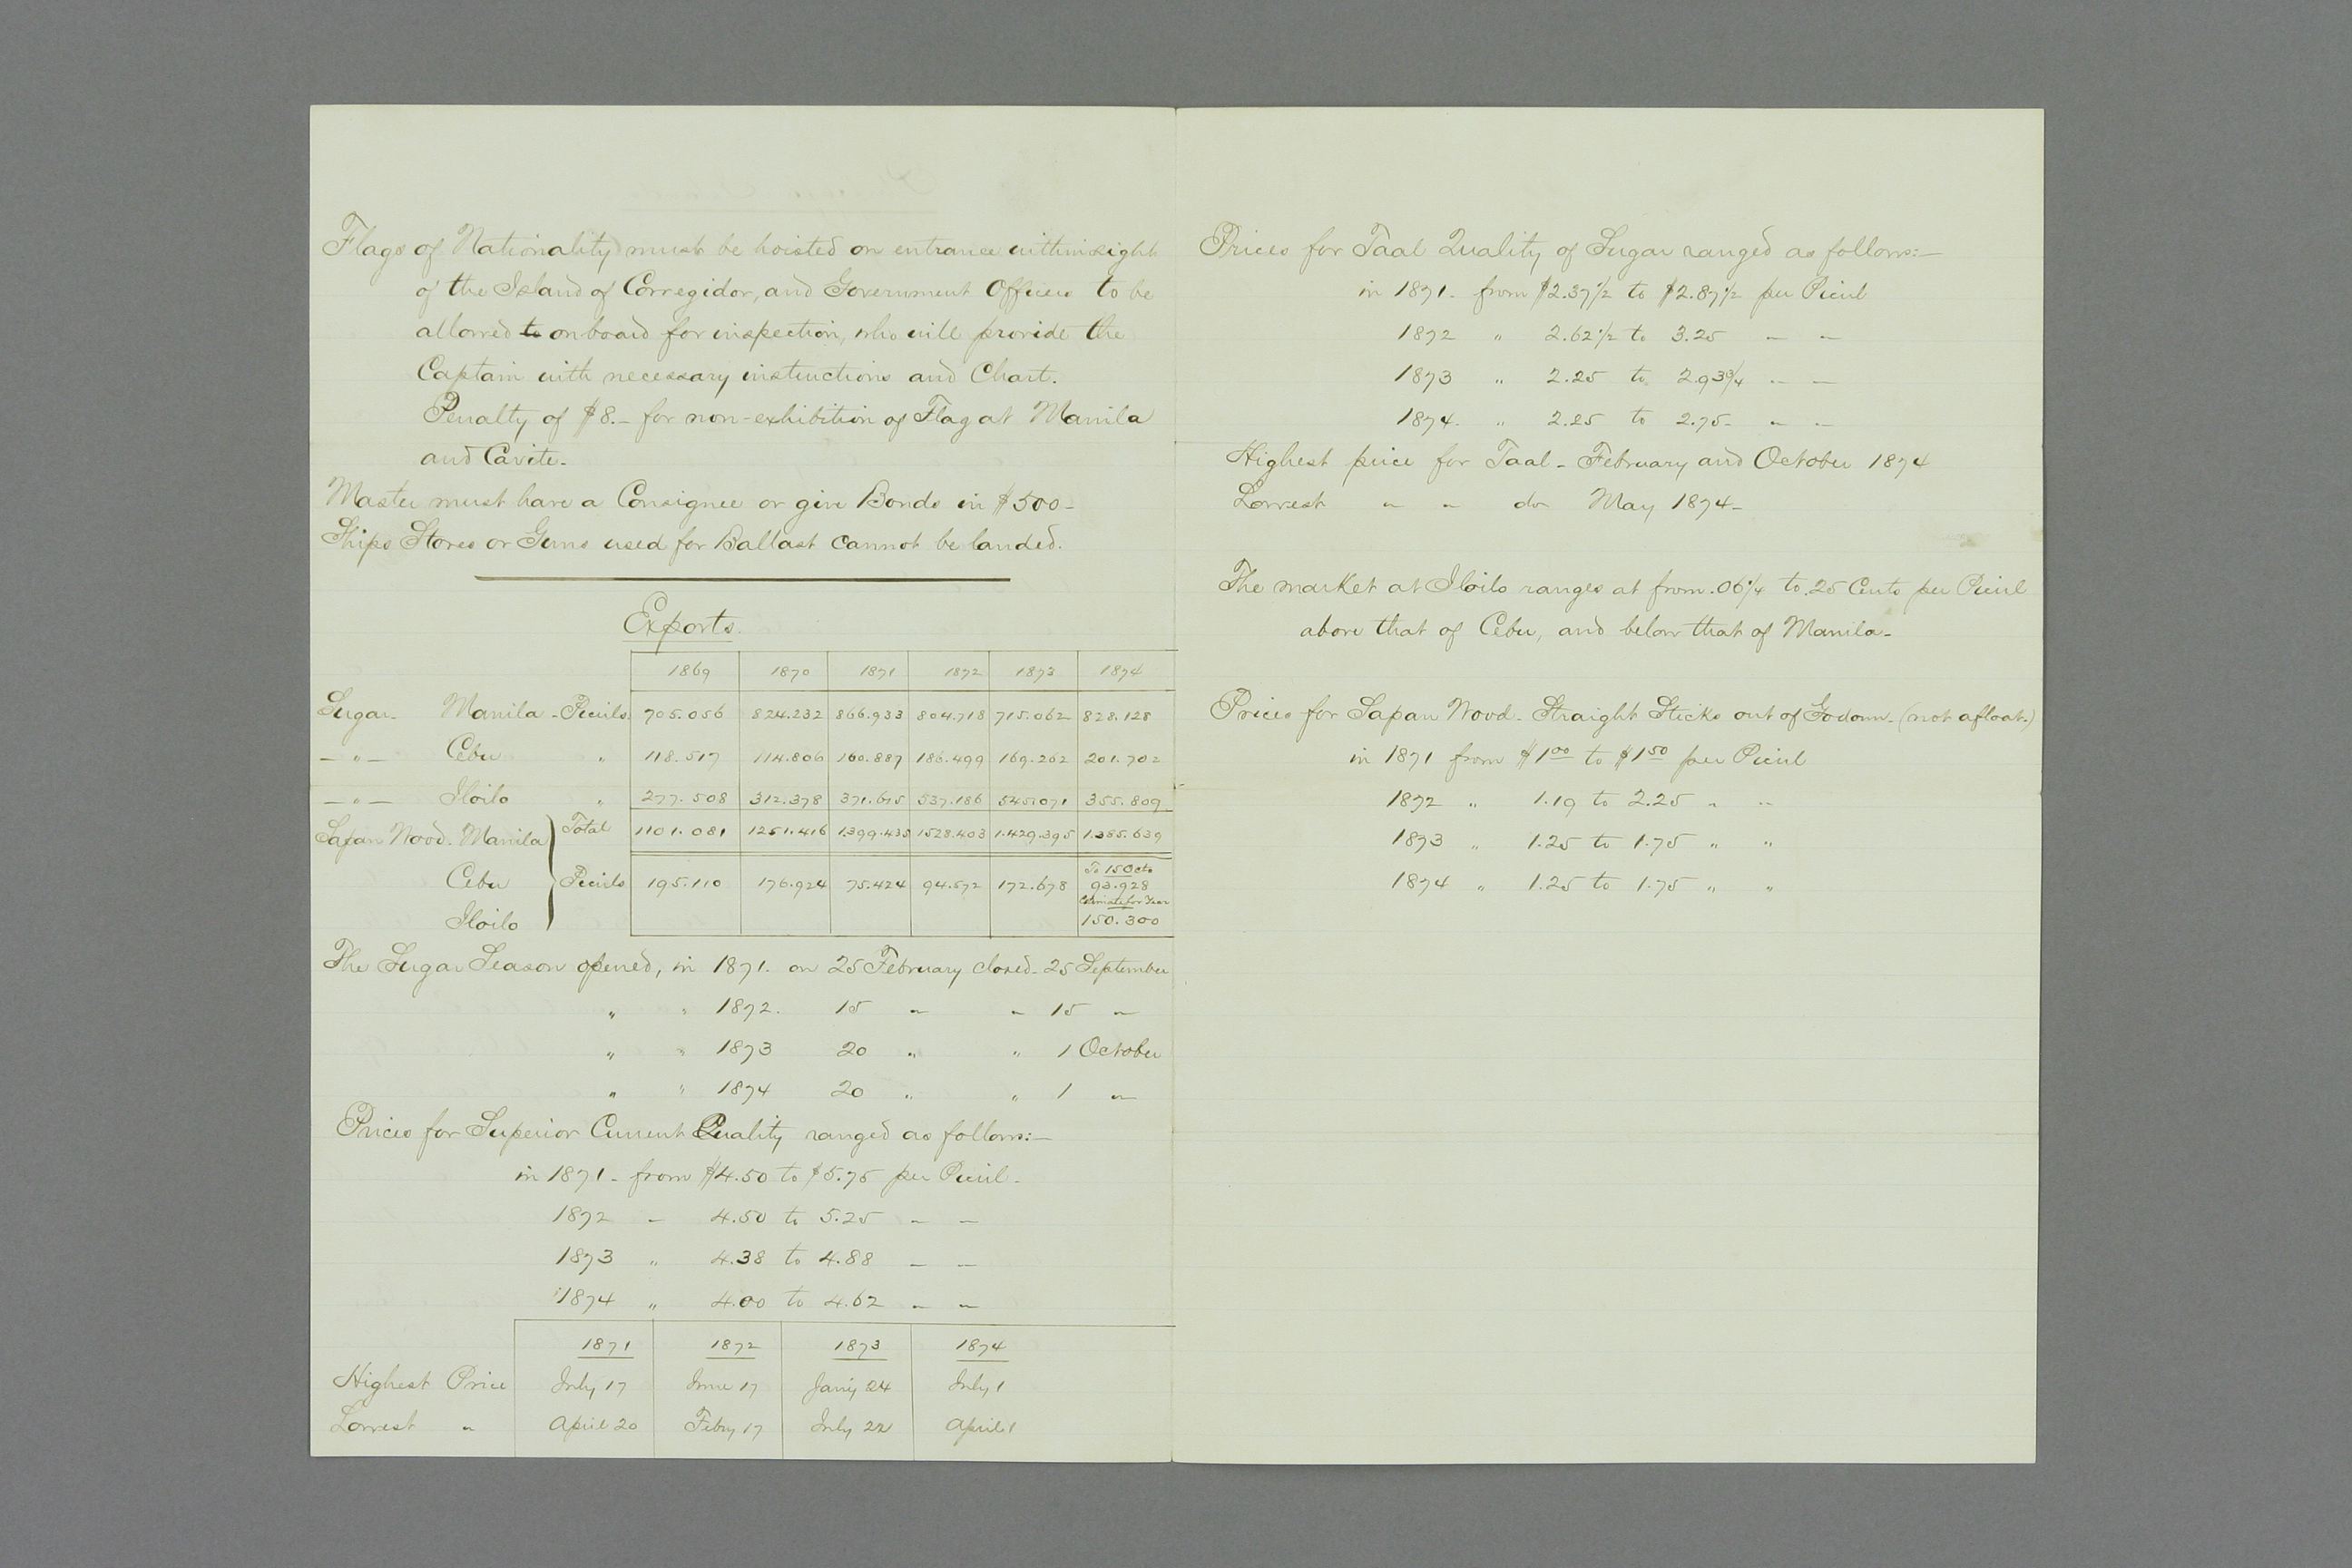 Flags of Nationality must be hoisted on entrance within sight
of the Island of Corregidor, and Government Officers to be
allowed to on board for inspection, who will provide the
Captain with necessary instructions and Chart.
Penalty of $8.– for non-exhibition of Flag at Manila
and Cavite.
Master must have a Consignee or give Bonds in $500–
Ships Stores or Guns used for Ballast cannot be landed.
Exports
1869 1870 1871 1872 1873 1874
Sugar– Manila – Piculs 705.056 824.232 866.933 804.718 715.062 828.128
– " – Cebu " 118.517 114.806 160.887 186.499 169.262 201.702
– " – Iloilo " 277.508 312.378 371.615 537.186 545.071 355.809
Sapan Wood. Manila Total 1101.081 1251.416 1.399.435 1528.403 1.429.395 1.385.639
To 15 Octo
Cebu Piculs 195.110 176.924 75.424 94.572 172.678 93.928
Estimate for Year
Iloilo 150.300
The Sugar Season opened, in 1871. on 25 February closed – 25 September
" " 1872. 15 " " 15 "
" " 1873 20 " " 1 October
" " 1874 20 " " 1 "
Prices for Superior Current Quality ranged as follows:–
in 1871 – from $4.50 to $5.75 per Picul –
1872 – 4.50 to 5.25 – –
1873 " 4.38 to 4.88 – –
1874 " 4.00 to 4.62 – –
1871 1872 1873 1874
Highest Price July 17 June 17 Jany 24 July 1
Lowest " April 20 Febry 17 July 22 April 1
Prices for Taal Quality of Sugar ranged as follows:–
in 1871 – from $2.37½ to $2.87½ per Picul
1872 " 2.62½ to 3.25 – –
1873 " 2.25 to 2.93¾ – –
1874. " 2.25 to 2.75 – – –
Highest price for Taal – February and October 1874
Lowest " " do May 1874 –
The market at Iloilo ranges at from .06¼ to .25 Cents per Picul
above that of Cebu, and below that of Manila –
Prices for Sapan Wood – Straight Sticks out of Godown – (not afloat.)
in 1871 from $1.00 to $1.50 per Picul
1872 " 1.19 to 2.25 " "
1873 " 1.25 to 1.75 " "
1874 " 1.25 to 1.75 " "